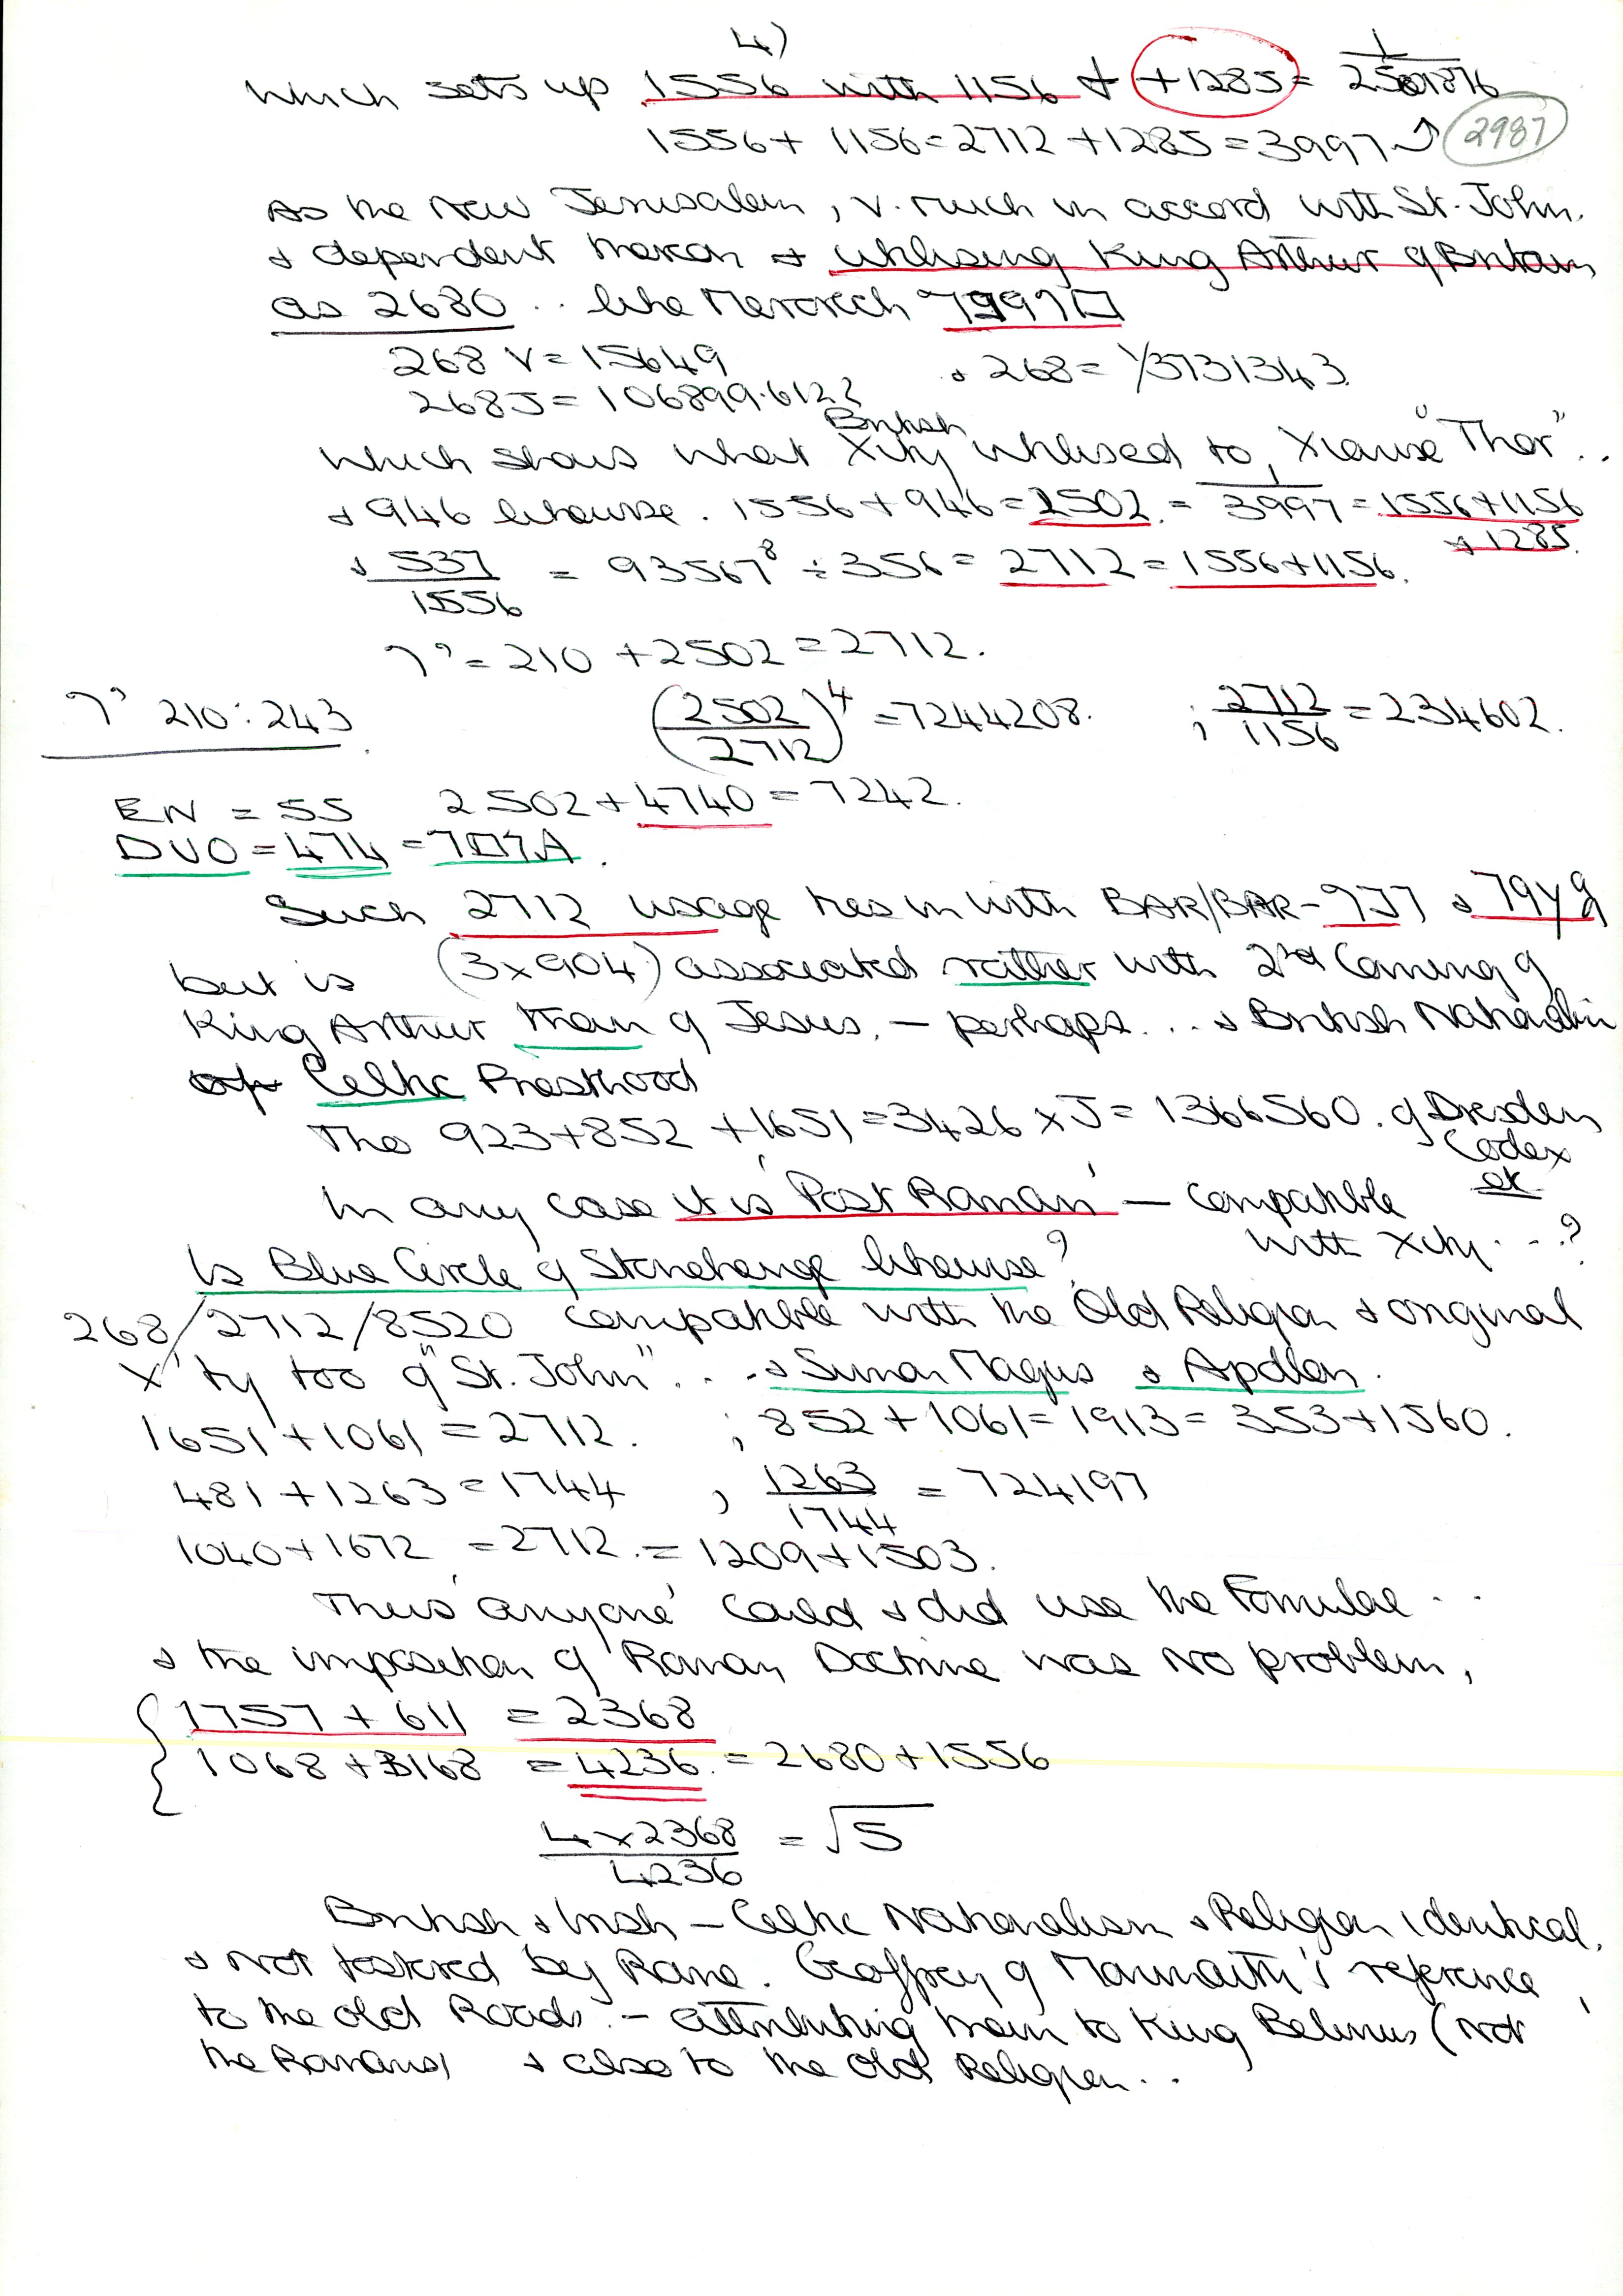 4)
which sets up 1556 with 1156 & +1285 = 1
1556 + 1156 = 2712 + 1285 = 3997 2987
As the New Jerusalem, v. much in accord with St. John.
& dependent thereon & utilising King Arthur of Britain
as 2680 .. like
268 V = 15649 & 268 = 1/3731343
268J = 106899.612
British
which shows what X'ity utilised to, "Thor"..
& 946 likewise. 1556 + 946 = 2502 = 3997 = 1556 + 1156
+ 1285.
& 537/1556 = 93567⁸ ÷ 356 = 2712 = 1556 + 1156.
= 210 + 2502 = 2712.
210 : 243 (2502/2712)⁴ = 7244208. ; 2712/1156 = 234602.
EN = 55 2502 + 4740 = 7242.
DUO = 474 =
Such 2712 usage ties in with BAR/BAR -
but is (3 x 904) associated rather with 2nd Coming of
King Arthur than of Jesus. — perhaps... & British Nationalism
Celtic Priesthood
The 923 + 852 + 1651 = 3426 x J = 1366560. of Dresden
Codex
etc
In any case it is 'Post Roman' — compatible
with Xity...?
Is Blue Circle of Stonehenge likewise?
268/2712/8520 compatible with the Old Religion & original
X'ty too of "St. John"... & Simon Magus & Apollon.
1651 + 1061 = 2712. ; 852 + 1061 = 1913 = 353 + 1560.
481 + 1263 = 1744 , 1263/1744 = 724197
1040 + 1672 = 2712. = 1209 + 1503.
Thus 'anyone' could & did use the Formulae..
& the imposition of Roman Doctrine was no problem,
1757 + 611 = 2368
1068 + 3168 = 4236. = 2680 + 1556
4x2368/4236 = √5
British & Irish — Celtic Nationalism & Religion identical.
& not fostered by Rome. Geoffrey of Monmouth's reference
to the old Roads. — attributing them to King Belinus (not
the Romans) & also to the Old Religion..